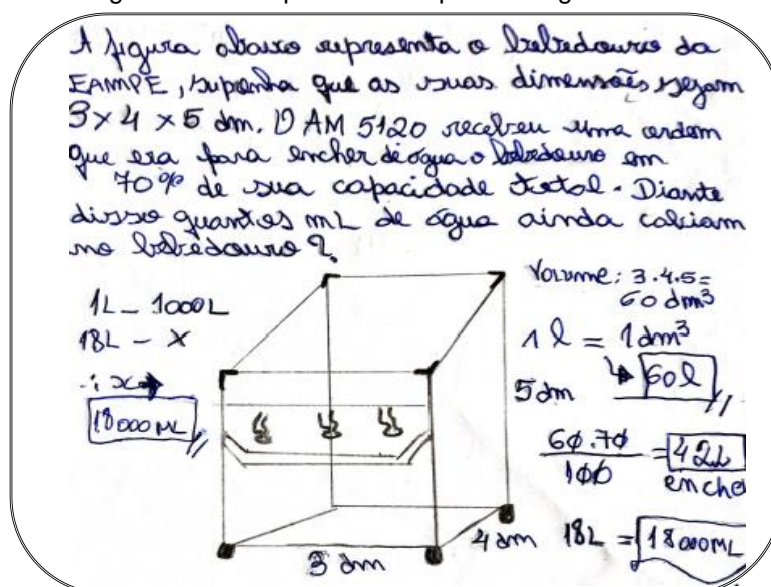 A figura abaixo representa o bebedouro da
EAMPE, suponha que as suas dimensões sejam
3 x 4 x 5 dm. O AM 5120 recebeu uma ordem
que era para encher de água o bebedouro em
70% de sua capacidade total. Diante
disso quantos mL de água ainda cabiam
no bebedouro?
Volume: 3.4.5=
60 dm³
1L - 1000L
18L - X
∴ x→
18000ML
1 l = 1dm³
60l
5 dm
60.70
100
= 42L
enche
18L = 18000ML
4 dm
3 dm